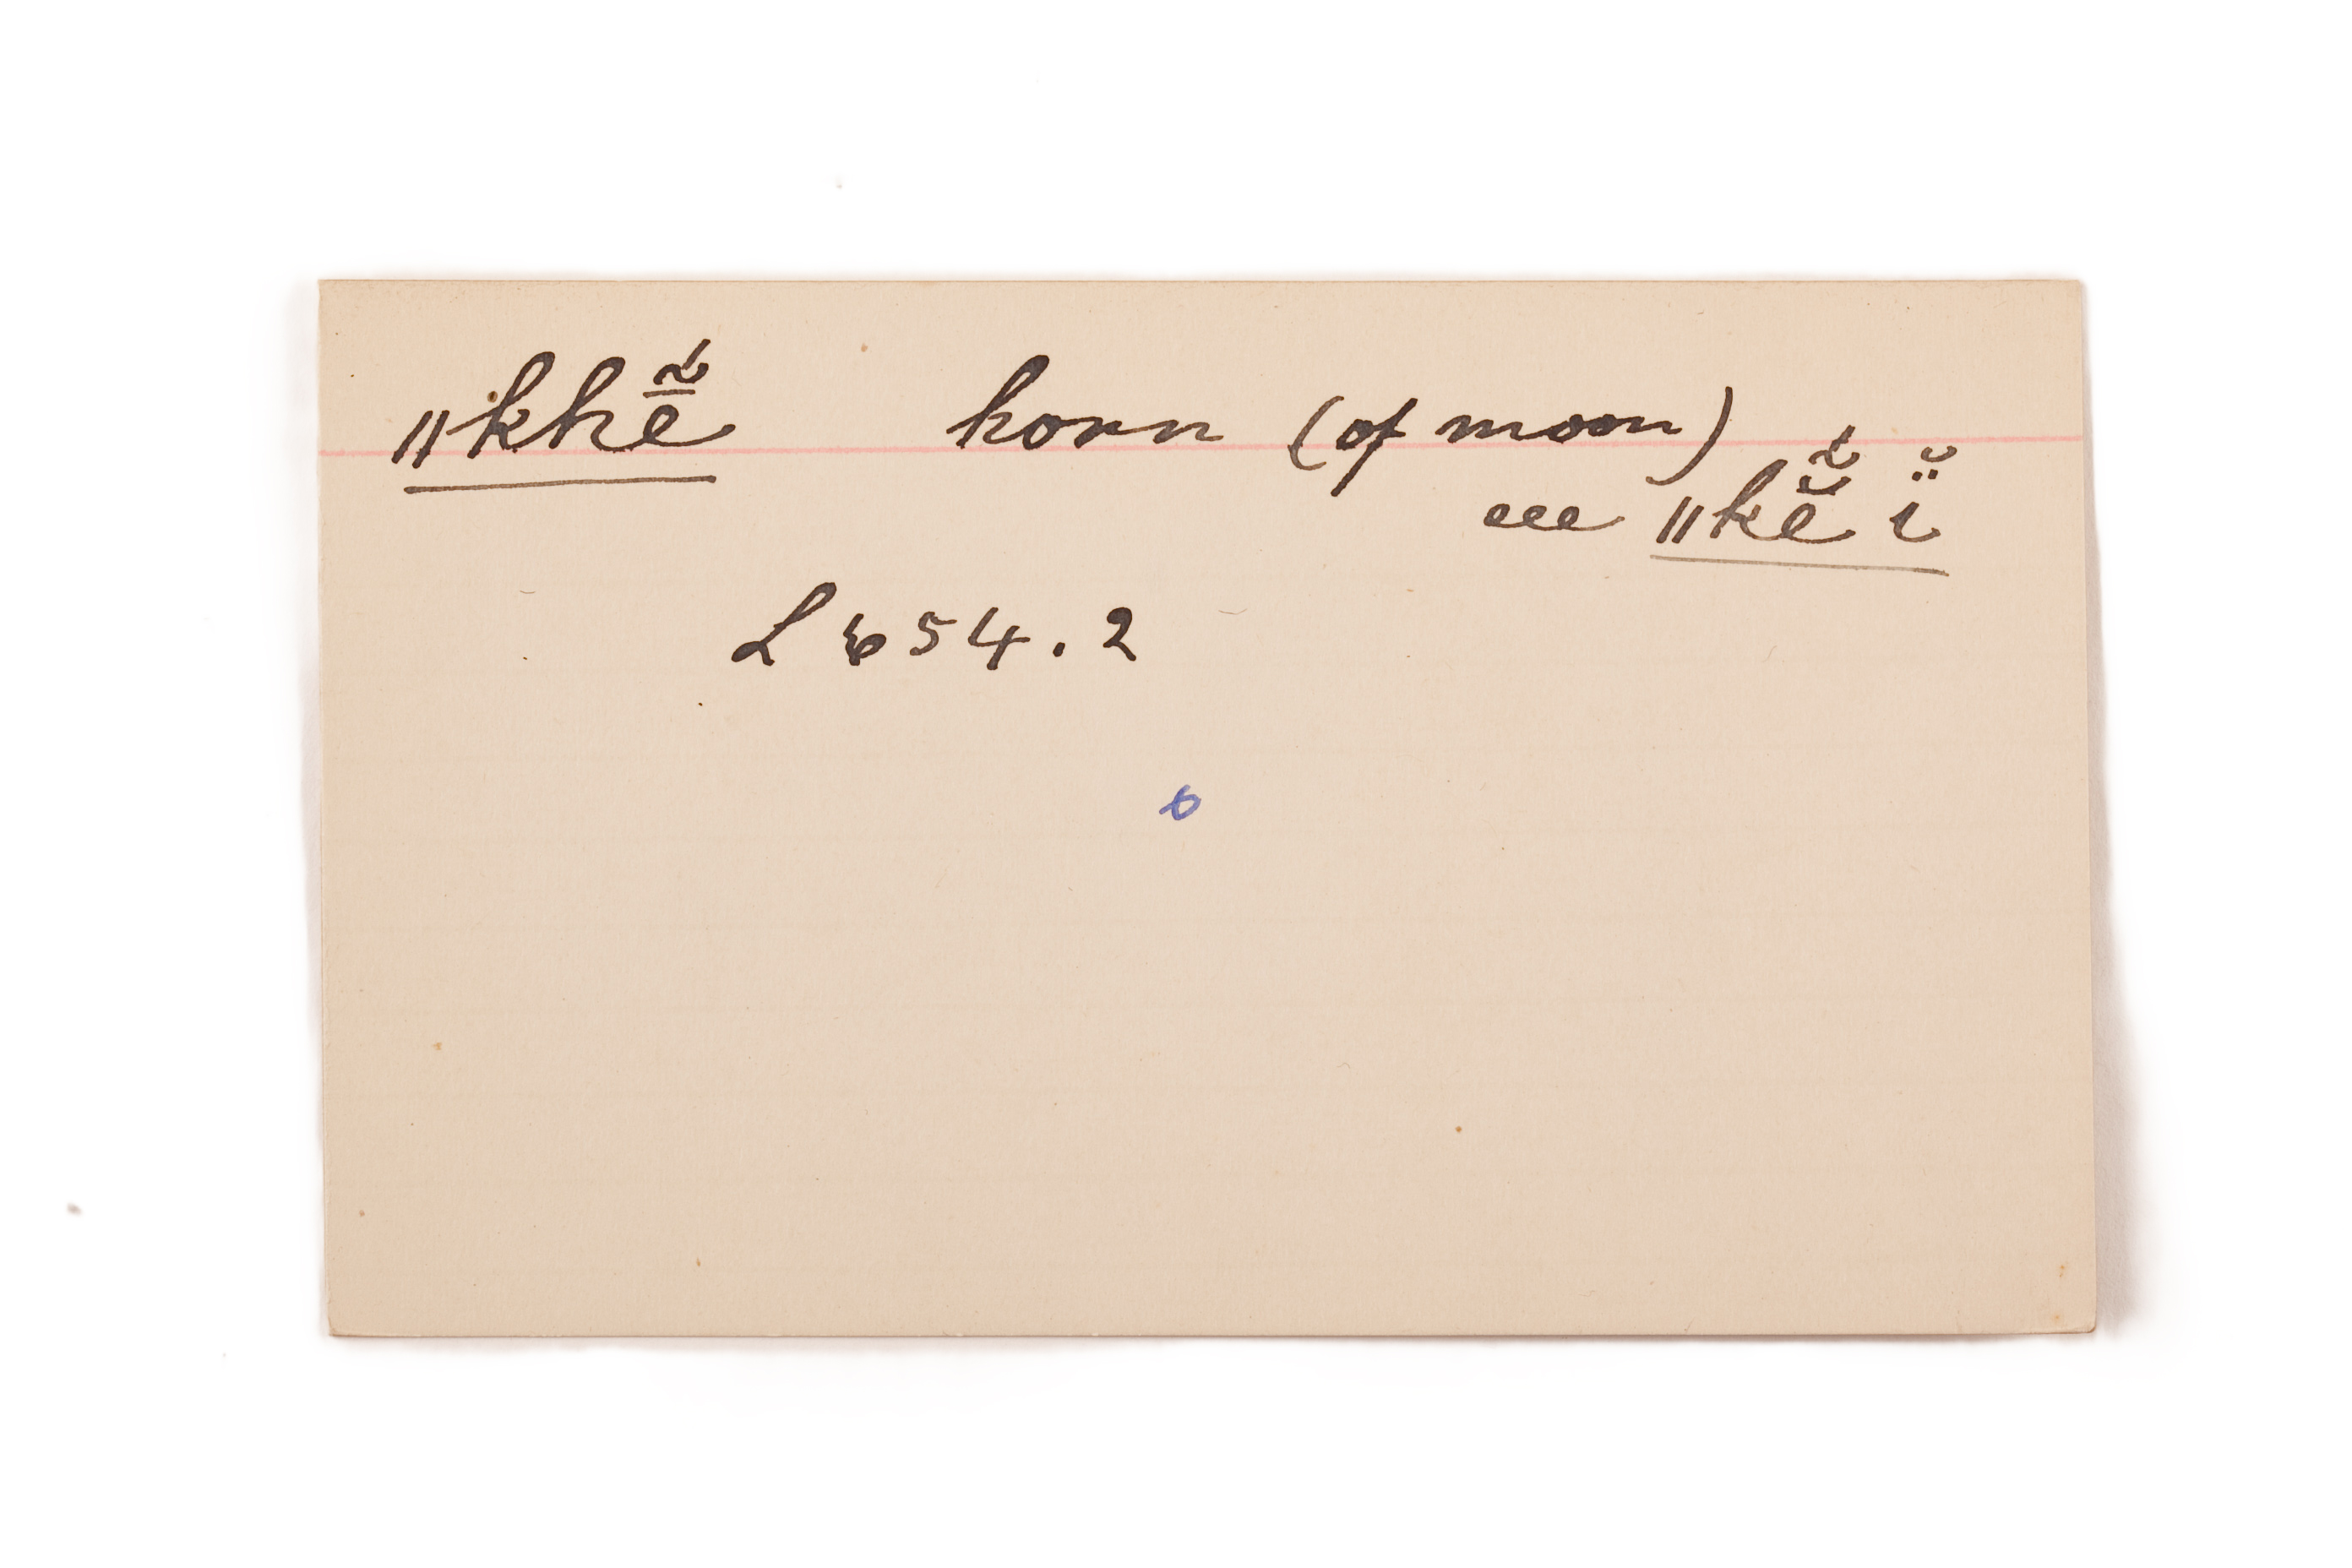 ǁkhḗ̃ horn (of moon)
see ǁkĕ̃́ ĭ̈
L 654.2
6